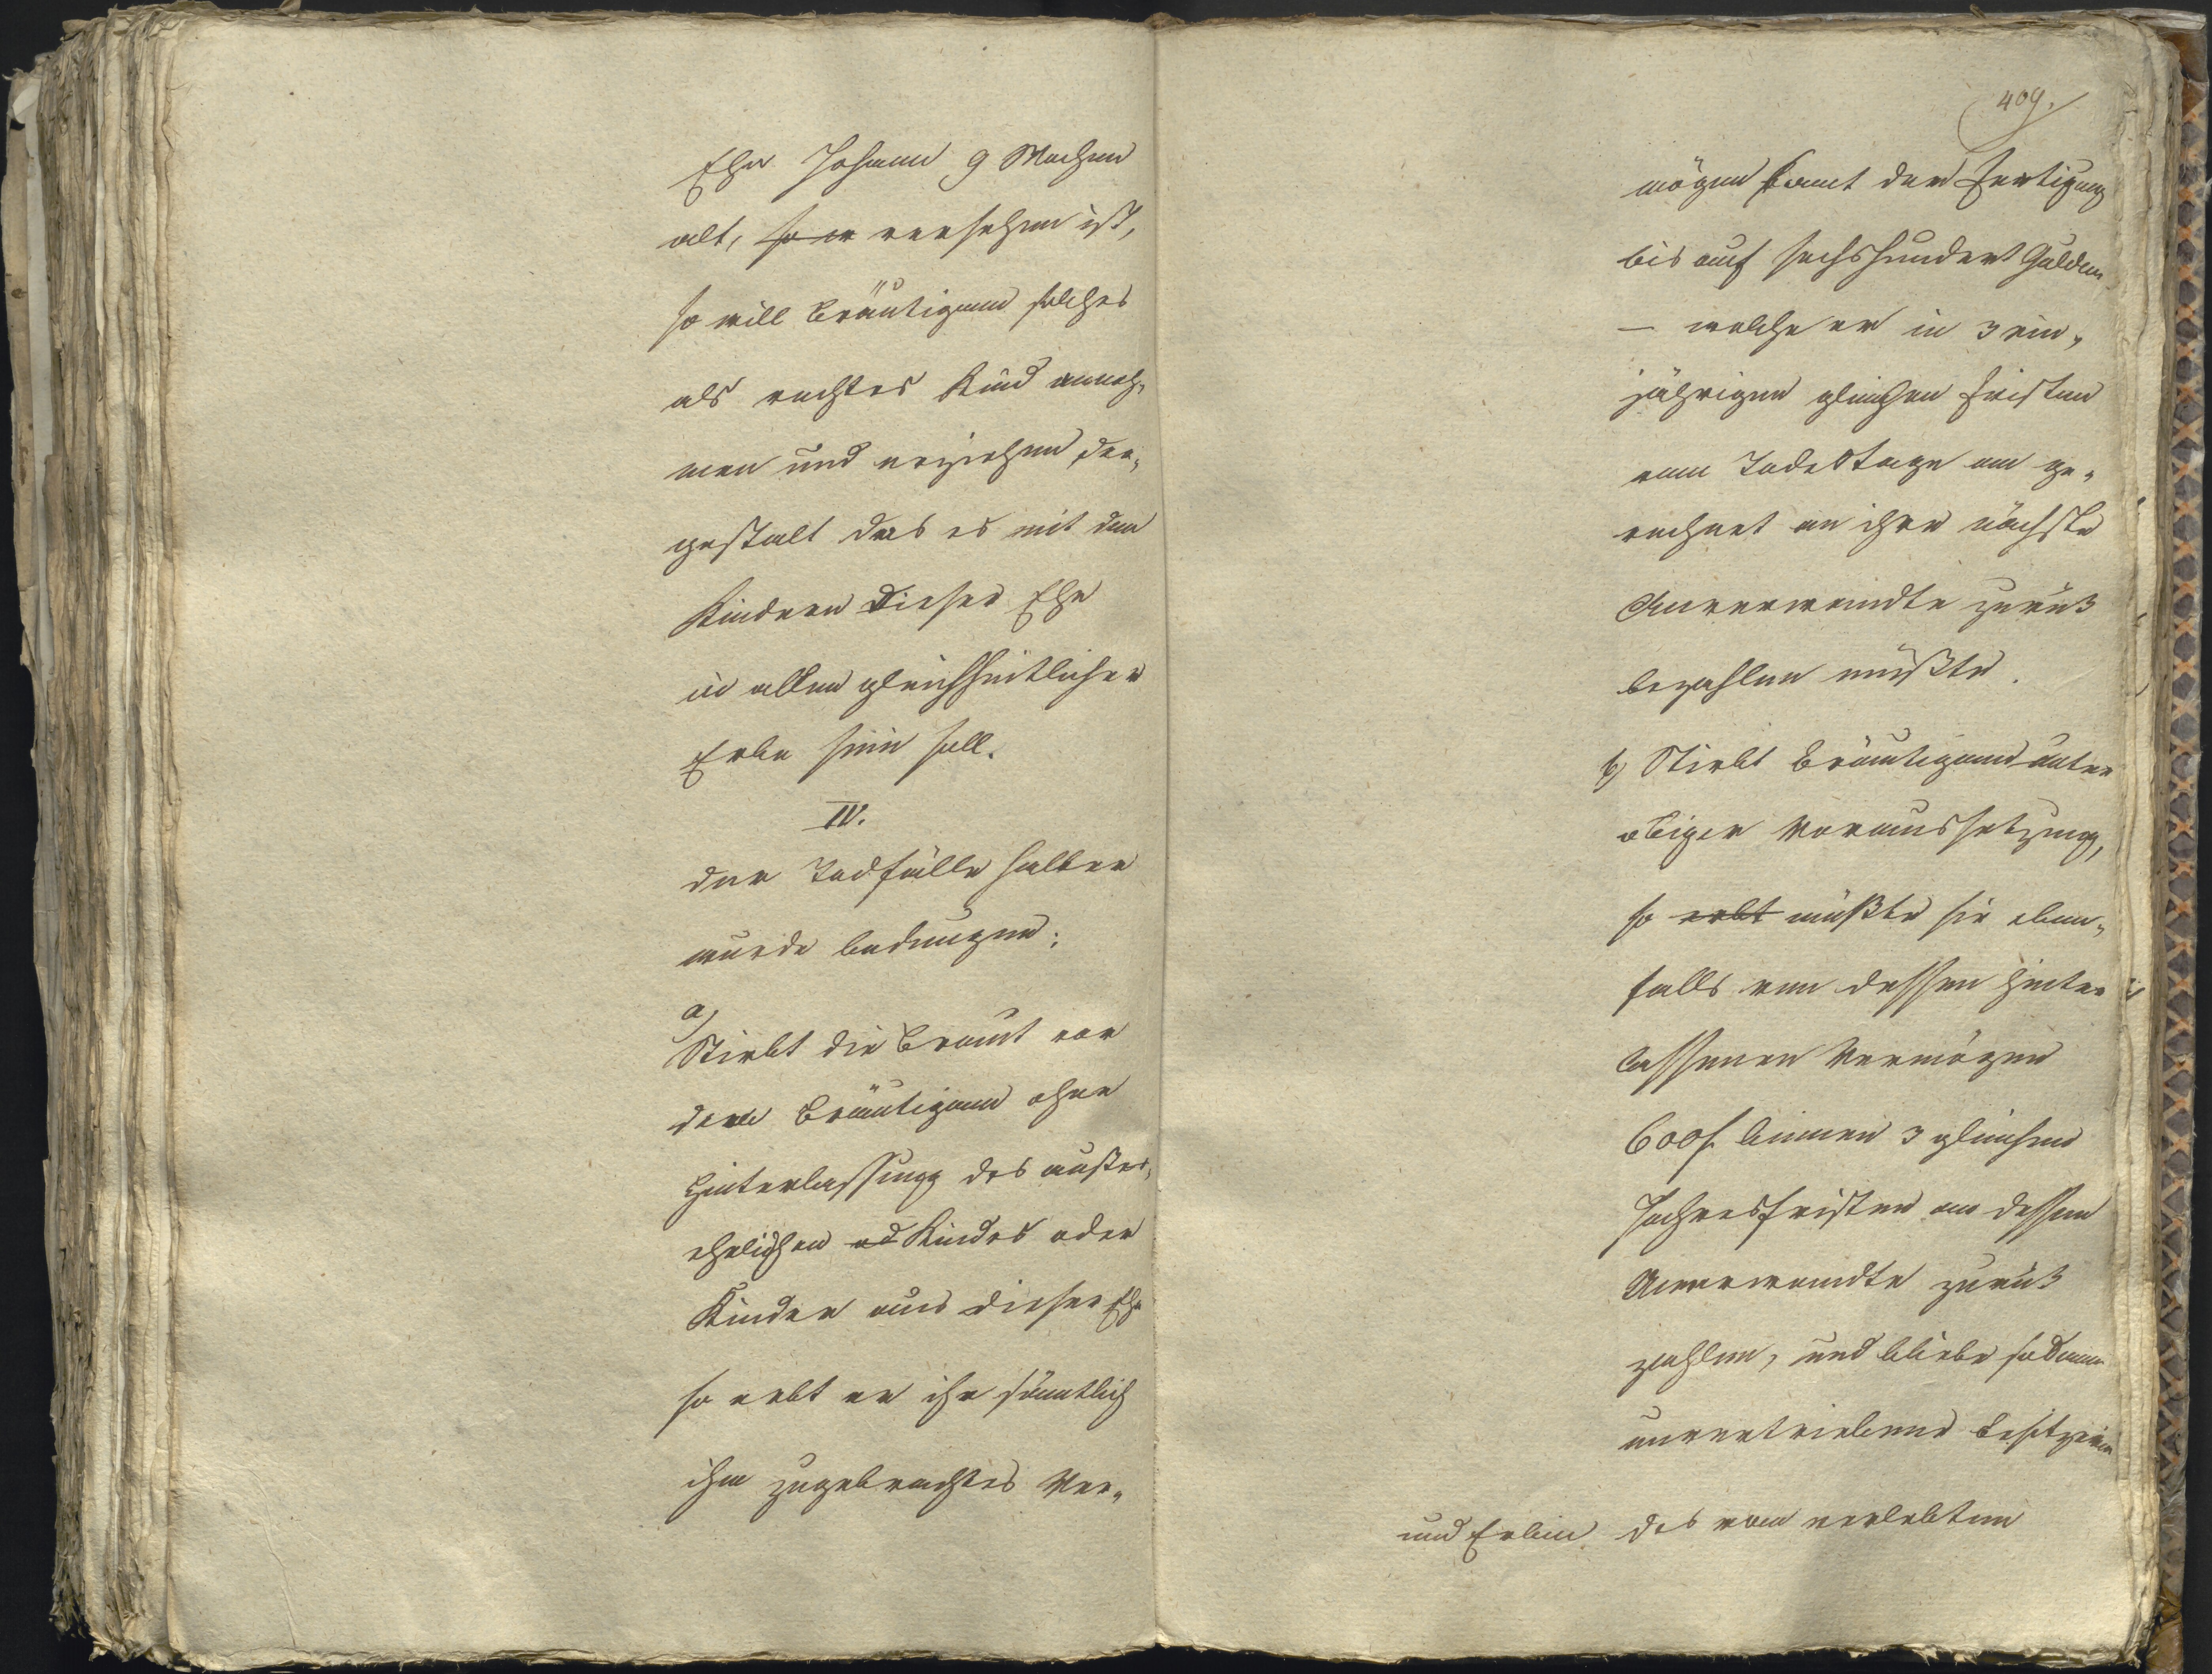 Ehe Johann 9 Wochen
alt, so er versehen ist,
so will Bräutigam solches
als rechtes Kind anneh„
men und erziehen der„
gestalt das es mit den
Kindern dieser Ehe
in allen gleichheitlicher
Erbe sein soll.
IV.
Der Todfälle halber
wurde bedungen:
a)
Stirbt die Braut vor
dem Bräutigam ohne
Hinterlassung des außer„
ehelichen od Kindes oder
Kinder aus dieser Ehe
so erbt er ihr sämtlich
ihm zugebrachtes Ver„
409.
mögen samt der Fertigung
bis auf sechshundert Gulden
— welche er in 3 ein„
jährigen gleichen Fristen
vom Todestage an ge„
rechnet an ihre nächste
Anverwandte zurück
bezahlen müßte.
b) Stirbt Bräutigam unter
obiger Voraussetzung,
so erbt müßte sie eben„
falls von dessen hinter
lassenen Vermögen
600 f. binnen 3 gleichen
Jahresfristen an dessen
Anverwandte zurück
zahlen, und bliebe sodann
unvertriebene Besitzerin
und Erbin des vom verlebten